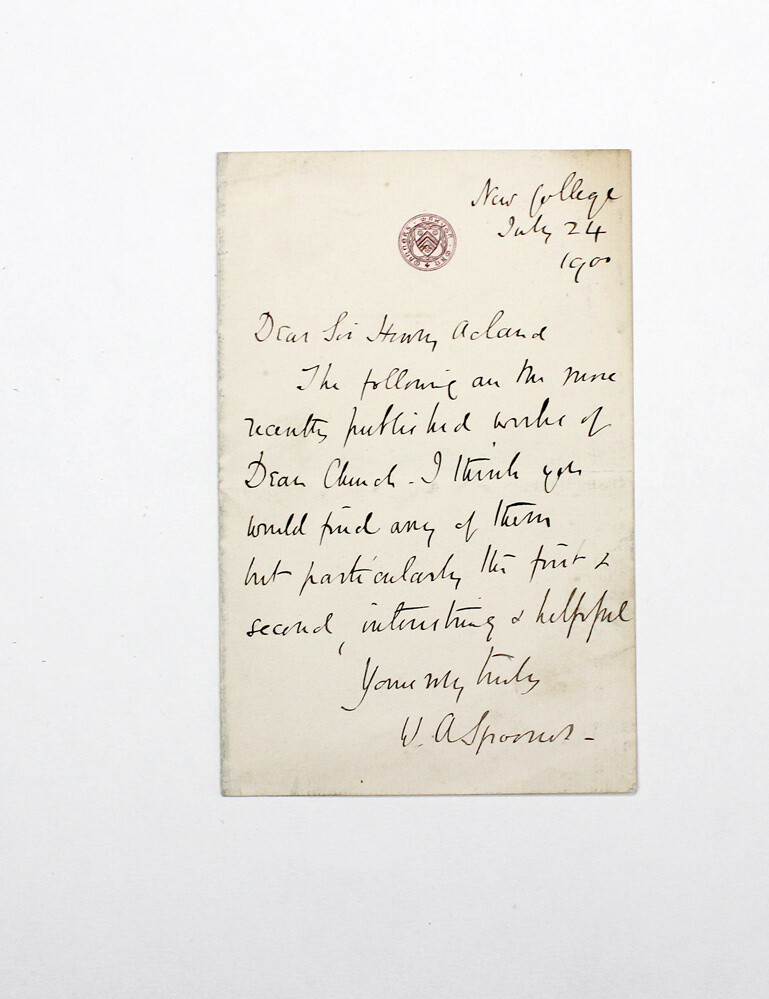 New College
July 24
1900
MANNERS MAKYTH MAN
Dear Sir Henry Acland
The following are the more
recently published works of
Dean Church - I think you
would find any of them
but particularly the first &
second, interesting & helpful
Yours very truly
W. A Spooner -